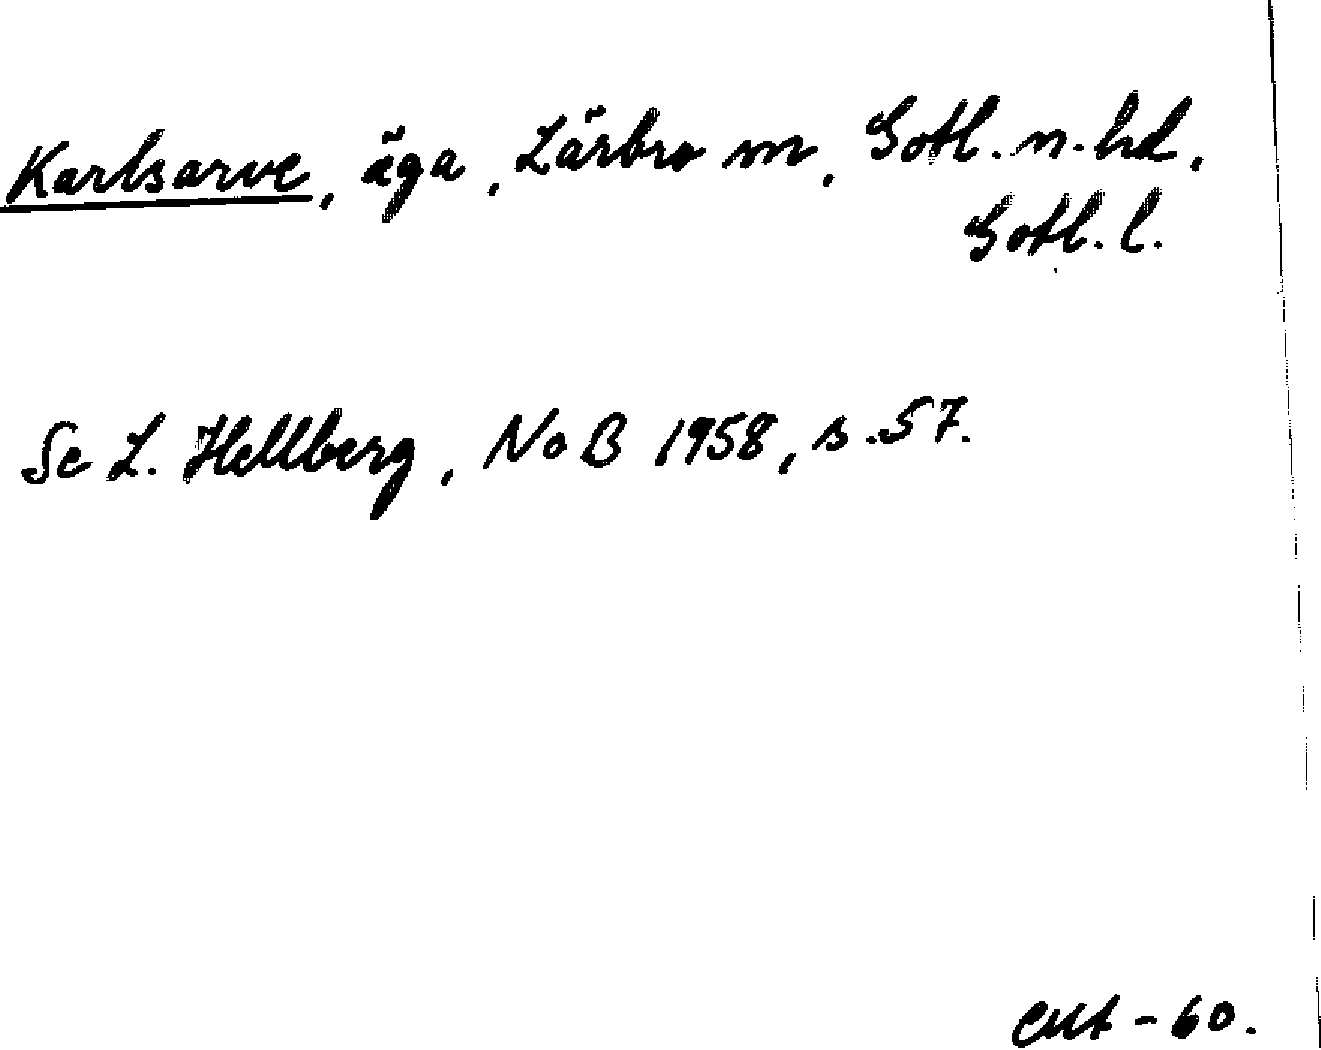 Karlsarve, äga, Lärbro sn, Gotl. n. hd,
Gotl. l.
Se L. Hellberg, NoB 1958, s. 57.
-60.